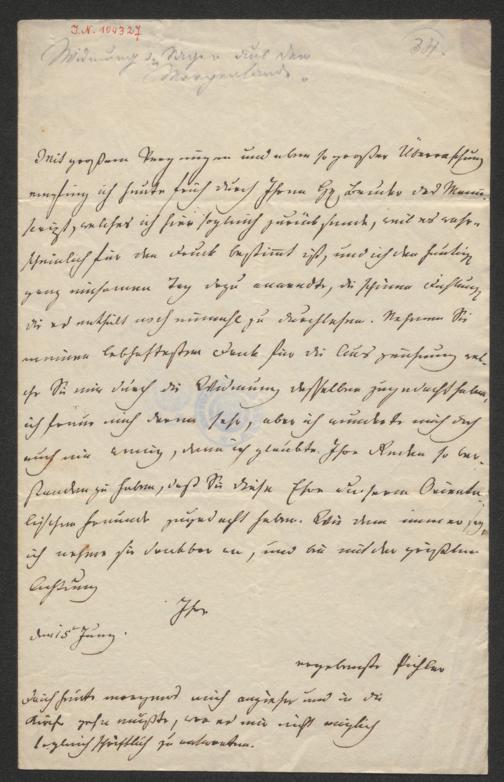 I.N. 104327
Widmung der Sagen aus dem
Morgenlande.
Mit großem Vergnügen und eben so großer Überraschung
empfing ich heute früh durch Ihren H. Bruder das Manu-
skript, welches ich hier sogleich zurücksende, weil es wahr-
scheinlich für den Druck bestimmt ist, und ich den heutigen
ganz einsamen Tag dazu anwendte, die schönen Dichtungen
die es enthält noch einmahl zu durchlesen. Nehmen Sie
meinen lebhaftesten Dank für die Auszeichnung wel-
che Sie mir durch die Widmung desselben zugedacht haben,
ich freue mich derer sehr, aber ich wunderte mich doch
auch ein wenig, denn ich glaubte Ihre Reden so ver-
standen zu haben, daß Sie diese Ehre unserm Orienta-
lischen Freunde zugedacht haben. Wie dem immer sey,
ich nehme sie dankbar an, und bin mit der größten
Achtung
Ihre
den 15 Juny.
ergebenste Pichler
Da ich heute morgens mich anziehen und in die
Kirche gehn mußte, war es mir nicht möglich
sogleich schriftlich zu antworten.